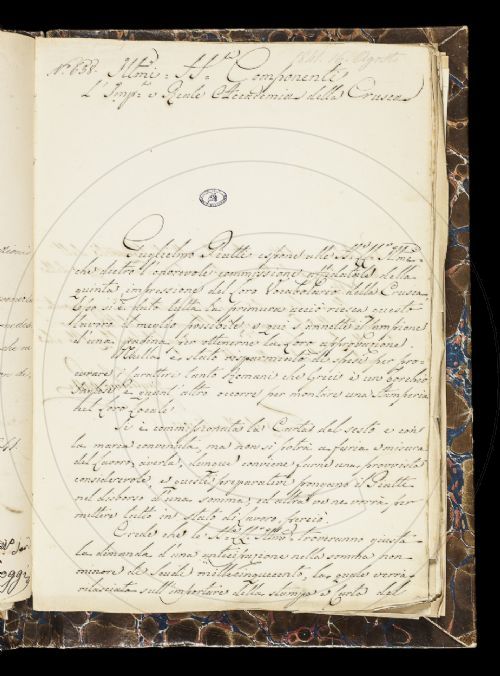 1841. 16. Agosto
N.° 638. Illmi. SS.ri Componenti
L'Imp.e e Reale Accademia della Crusca
Guglielmo Piatti espone alle SS.rie LL.re Illme.
che dietro l'onorevole commissione affidatale della
quinta impressione del Loro Vocabolario della Crusca
Egli si è fatto tutta la premura acciò riesca questo
lavoro il meglio possibile, e qui si annette il campione
d'una pagina per ottenerne la Loro approvazione.
Nulla è stato risparmiato di spese per pro-
curare i caratteri tanto Romani che Greci e un Torchio
Inglese, e quant'altro occorre per montare una Stamperia
nel Loro Locale.
Si è commissionata la Carta del sesto e con
la marca convenuta, ma non si potrà a furia e misura
del lavoro averla, dunque conviene farne una provvista
considerevole, e questi preparativi pongono il Piatti
nel disborso di una somma, ed altra ve ne vorrà per
mettere tutto in stato di lavoro, perciò
Crede che le SS.rie LL. Illme. troveranno giusta
la dimanda d'una anticipazione nella somma non
minore di Scudi millecinquecento, la quale verrà
rilasciata sull'importare della stampa e Carta del